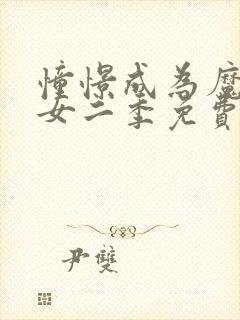 憧憬成為魔
女二季免費
尹雙